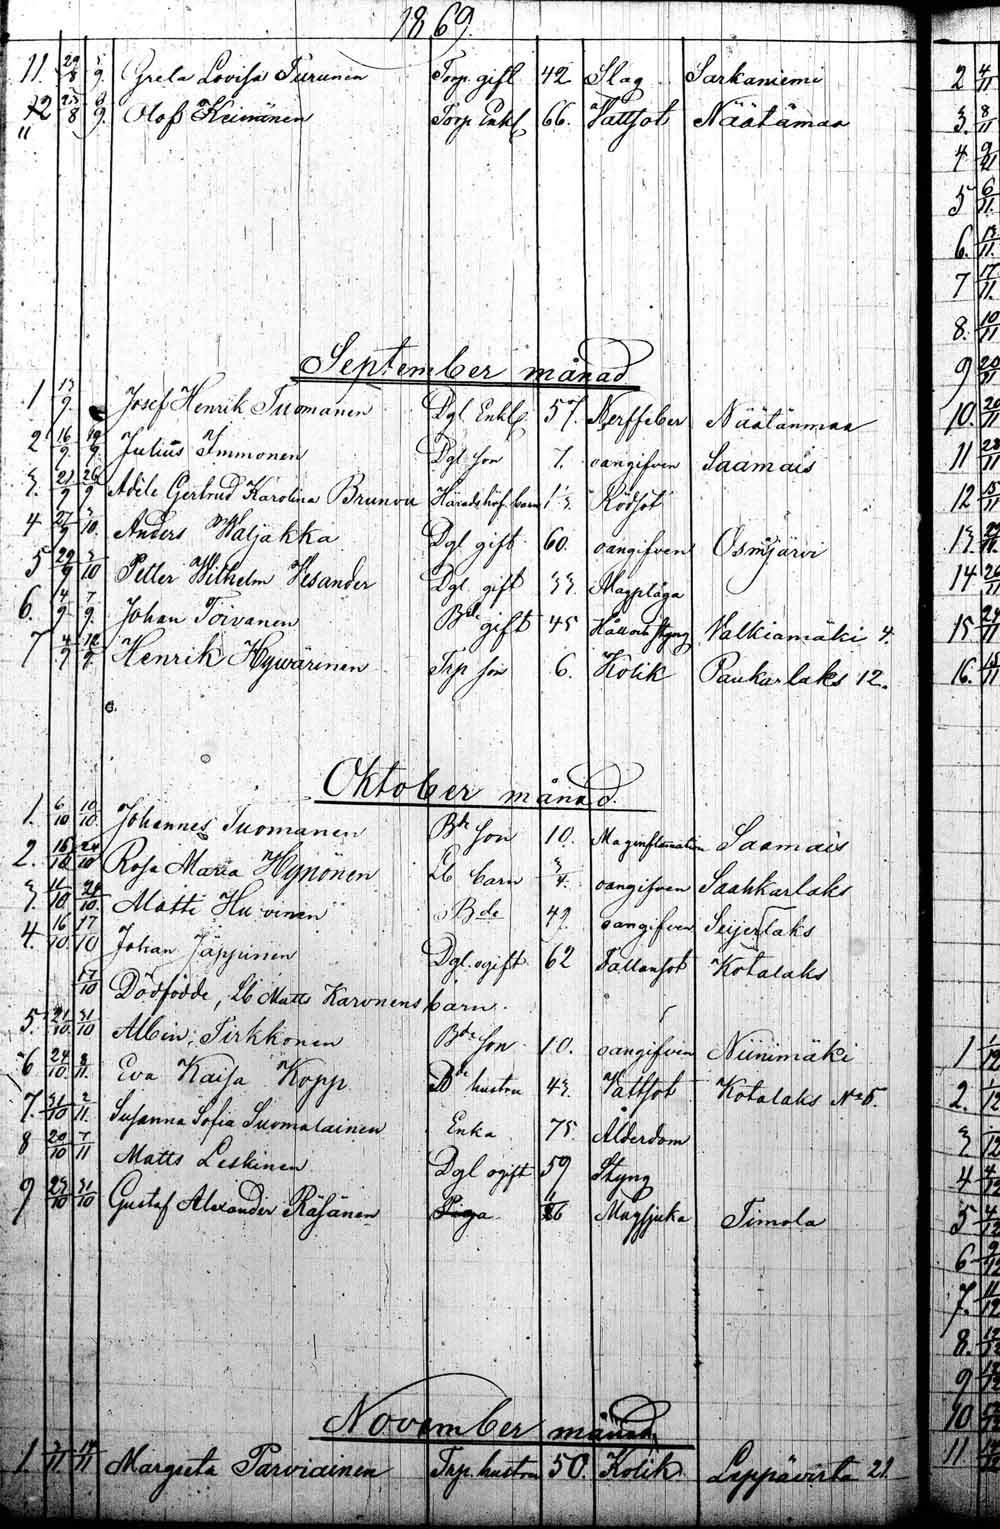 1869.
11. 29/8 5/9. Grela Lovisa Turunen Torp. gift 42 Slag Sarkaniemi
12 25/8 9. Olof Keinänen Torp Enkl 66. Vattsot Näätämaa
11
September månad
1 13/9. Josef Henrik Tuomanen Dgl. Enkl 57. Nerffeber Näätänmaa
2 16/9 19/9. Julius Immonen Dgl son 7. oangifven Saamais
3. 21/9 26/9 Adèle Gertrud Karolina Brunou Häradshöf. barn Rödsot
4 27/9 3/10. Anders Waljakka Dgl gift 60. oangifven Osmajärvi
5 29/9 3/10 Petter Wilhelm Vesander Dgl gift 33. Magplåga
6. 4/9 7/9. Johan Toivanen Bde gift 45 Håll och styng Valkiamäki 4.
7 4/9 12/9. Henrik Hyvärinen Trp son 6. Kolik Paukarlaks 12.
Oktober månad.
1. 6/10 10/10. Johannes Tuomanen Bde son 10. Maginflamation Saamais
2. 16/10 24/10 Rosa Maria Hynönen Lb barn 3/4. oangifven Saahkarlaks
3. 24/10. Matti Bde 49. oangifven Seijerlaks
4. 16/10. 17/10 Johan Jäppinen Dgl. ogift 62 Fallansot Kotalaks
17/10 Dödfödde, Lb Matts Karvnens barn.
5. 21/10. 31/10 Albin Tirkkonen Bde son 10. oangifven Niinimäki
6 24/10. 8/11. Eva Kaisa Kopp Bde hustru 43. Vattsot Kotalaks No 5.
7. 31/10 2/11. Susanna Sofia Suomalainen Enka 75. Ålderdom
8 20/10 7/11 Matts Leskinen Dgl ogift 59 Styng
9 23/10 31/10 Gustaf Alexander Räsänen Piga 11 Magsjuka Timola
November månad
1. 14/11 Margreta Parviainen Trp. hustru 50. Kolik Leppävirta 21
2 4/11
3. 8/11
4 9/11
5 6/11.
6. 13/11.
7 17/11.
8. 10/11
9 20/11
10. 20/11
11 28/11
12 15/11
13.
14 26/11
15 24/11
16. 15/11
1 1/12
2. 1/12
3 /12
4 4/12
5 4/12
6 9/12
7. 11/12
8.
9
10
11